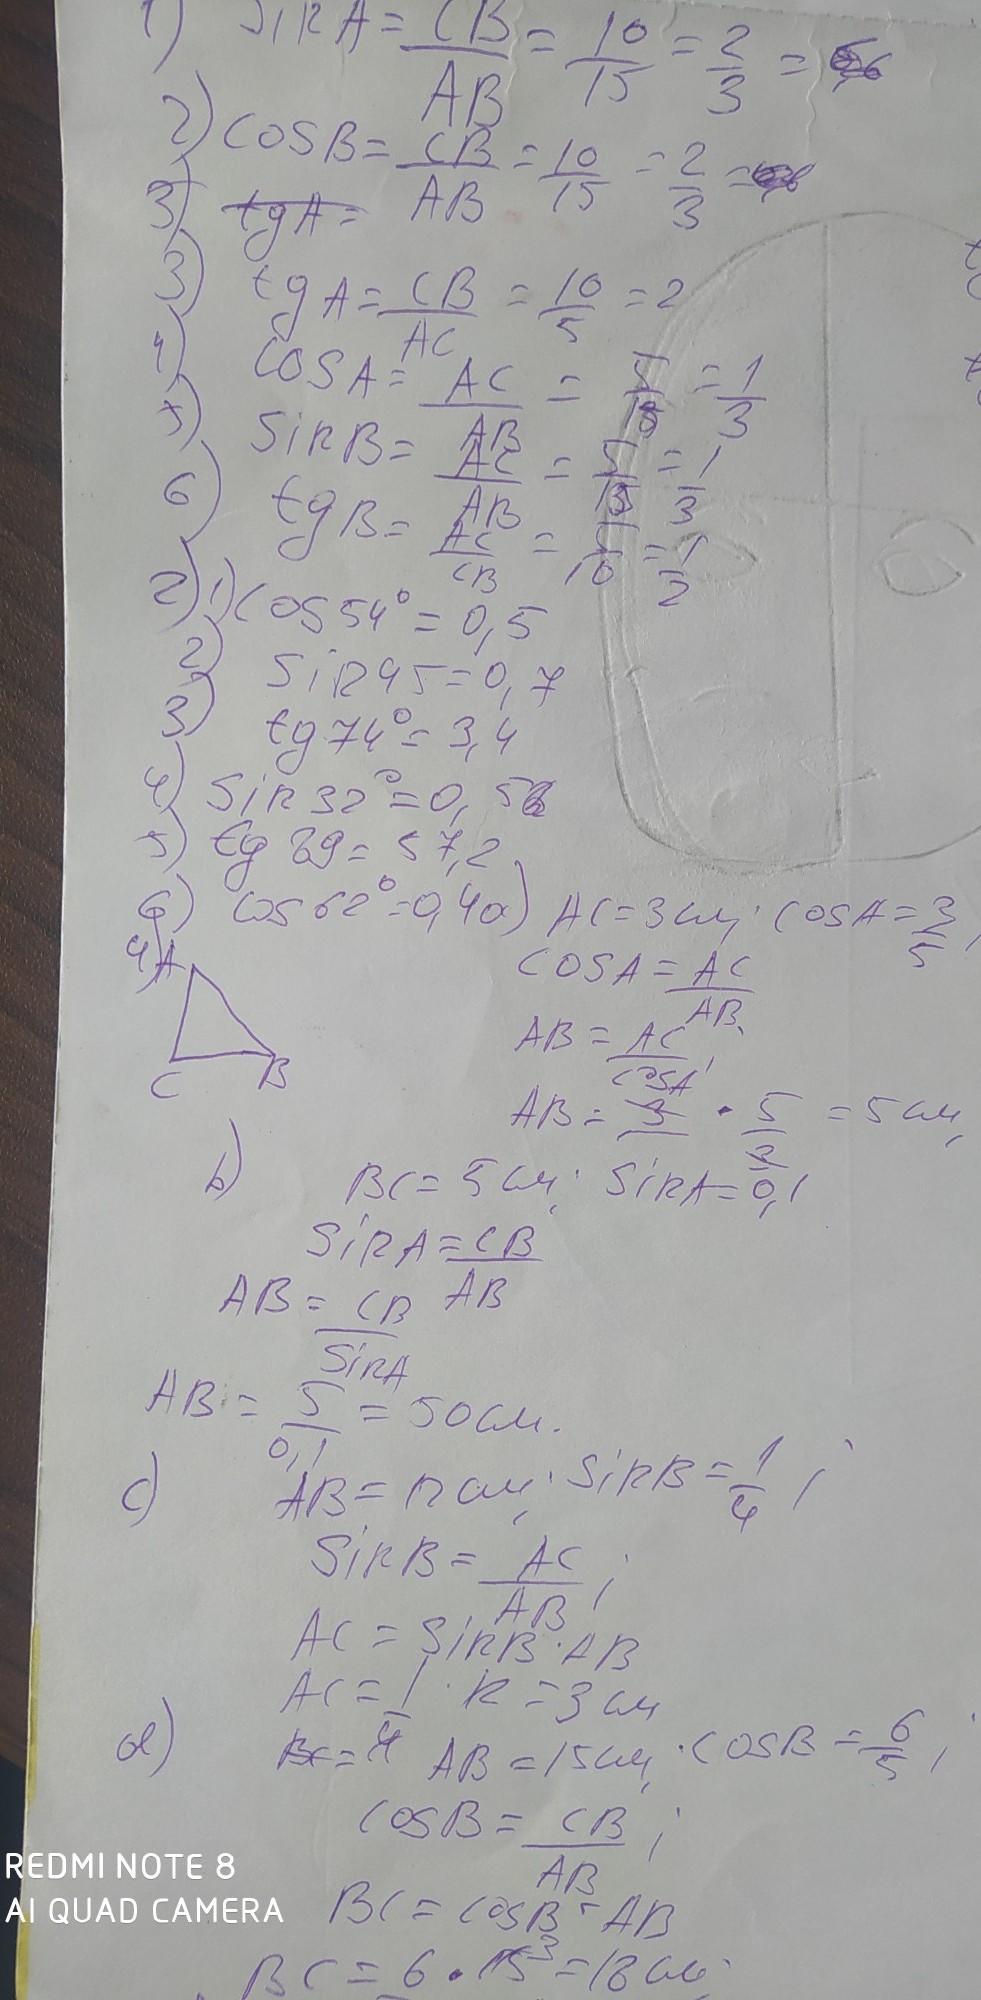 1) sin A = CB/AB = 10/15 = 2/3 =
2) cos B = CB/AB = 10/15 = 2/3 =
3) tg A =
3) tg A = CB/AC = 10/5 = 2
4) cos A = AC/AB = 5/15 = 1/3
5) sin B = AC/AB = 5/15 = 1/3
6) tg B = AC/CB = 5/10 = 1/2
2) 1) cos 54° = 0,5
2) sin 45 = 0,7
3) tg 74° = 3,4
4) sin 32° = 0,5
5) tg 89 = 57,2
6) cos 62° = 0,4
a) AC = 3 см; cos A = 3/5;
4) A
C B
cos A = AC/AB;
AB = AC/cos A;
AB = 3 · 5/3 = 5 см;
b) BC = 5 см; sin A = 0,1
sin A = CB/AB
AB = CB/sin A
AB = 5/0,1 = 50 см.
c) AB = 12 см; sin B = 1/4;
sin B = AC/AB;
AC = sin B · AB
AC = 1/4 · 12 = 3 см
d) BC = AB = 15 см; cos B = 6/5;
cos B = CB/AB;
BC = cos B · AB
BC = 6 · 15 3 = 18 см;
REDMI NOTE 8
AI QUAD CAMERA